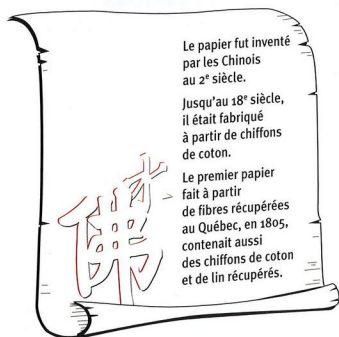 Le papier fut inventé
par les Chinois
au 2e siècle.
Jusqu'au 18e siècle,
il était fabriqué
à partir de chiffons
de coton.
Le premier papier
fait à partir
de fibres récupérées
au Québec, en 1805,
contenait aussi
des chiffons de coton
et de lin récupérés.
佛